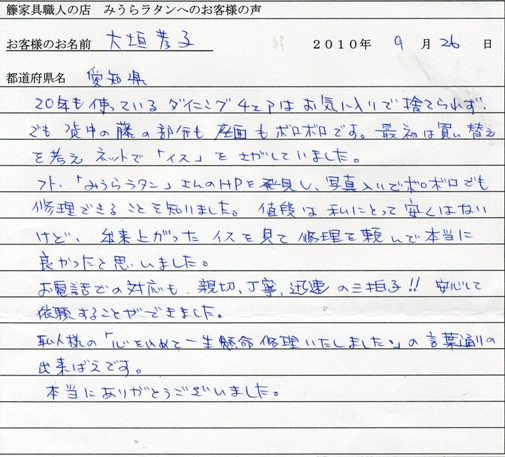 籐家具職人の店 みうらラタンへのお客様の声
お客様のお名前 大垣 孝子 2010年 9月 26日
都道府県名 愛知県
20年も使っているダイニングチェアはお気に入りで捨てられず、
でも背中の藤の部分も座面もボロボロです。最初は買い替え
を考えネットで「イス」をさがしていました。
フト、「みうらラタン」さんのHPを発見し、写真入りでボロボロでも
修理できることを知りました。値段は私にとって安くはない
けど、出来上がったイスを見て修理を頼んで本当に
良かったと思いました。
お電話での対応も、親切、丁寧、迅速の三拍子!! 安心して
依頼することができました。
の「心をこめて一生懸命修理いたしました。」の言葉通りの
出来ばえです。
本当にありがとうございました。